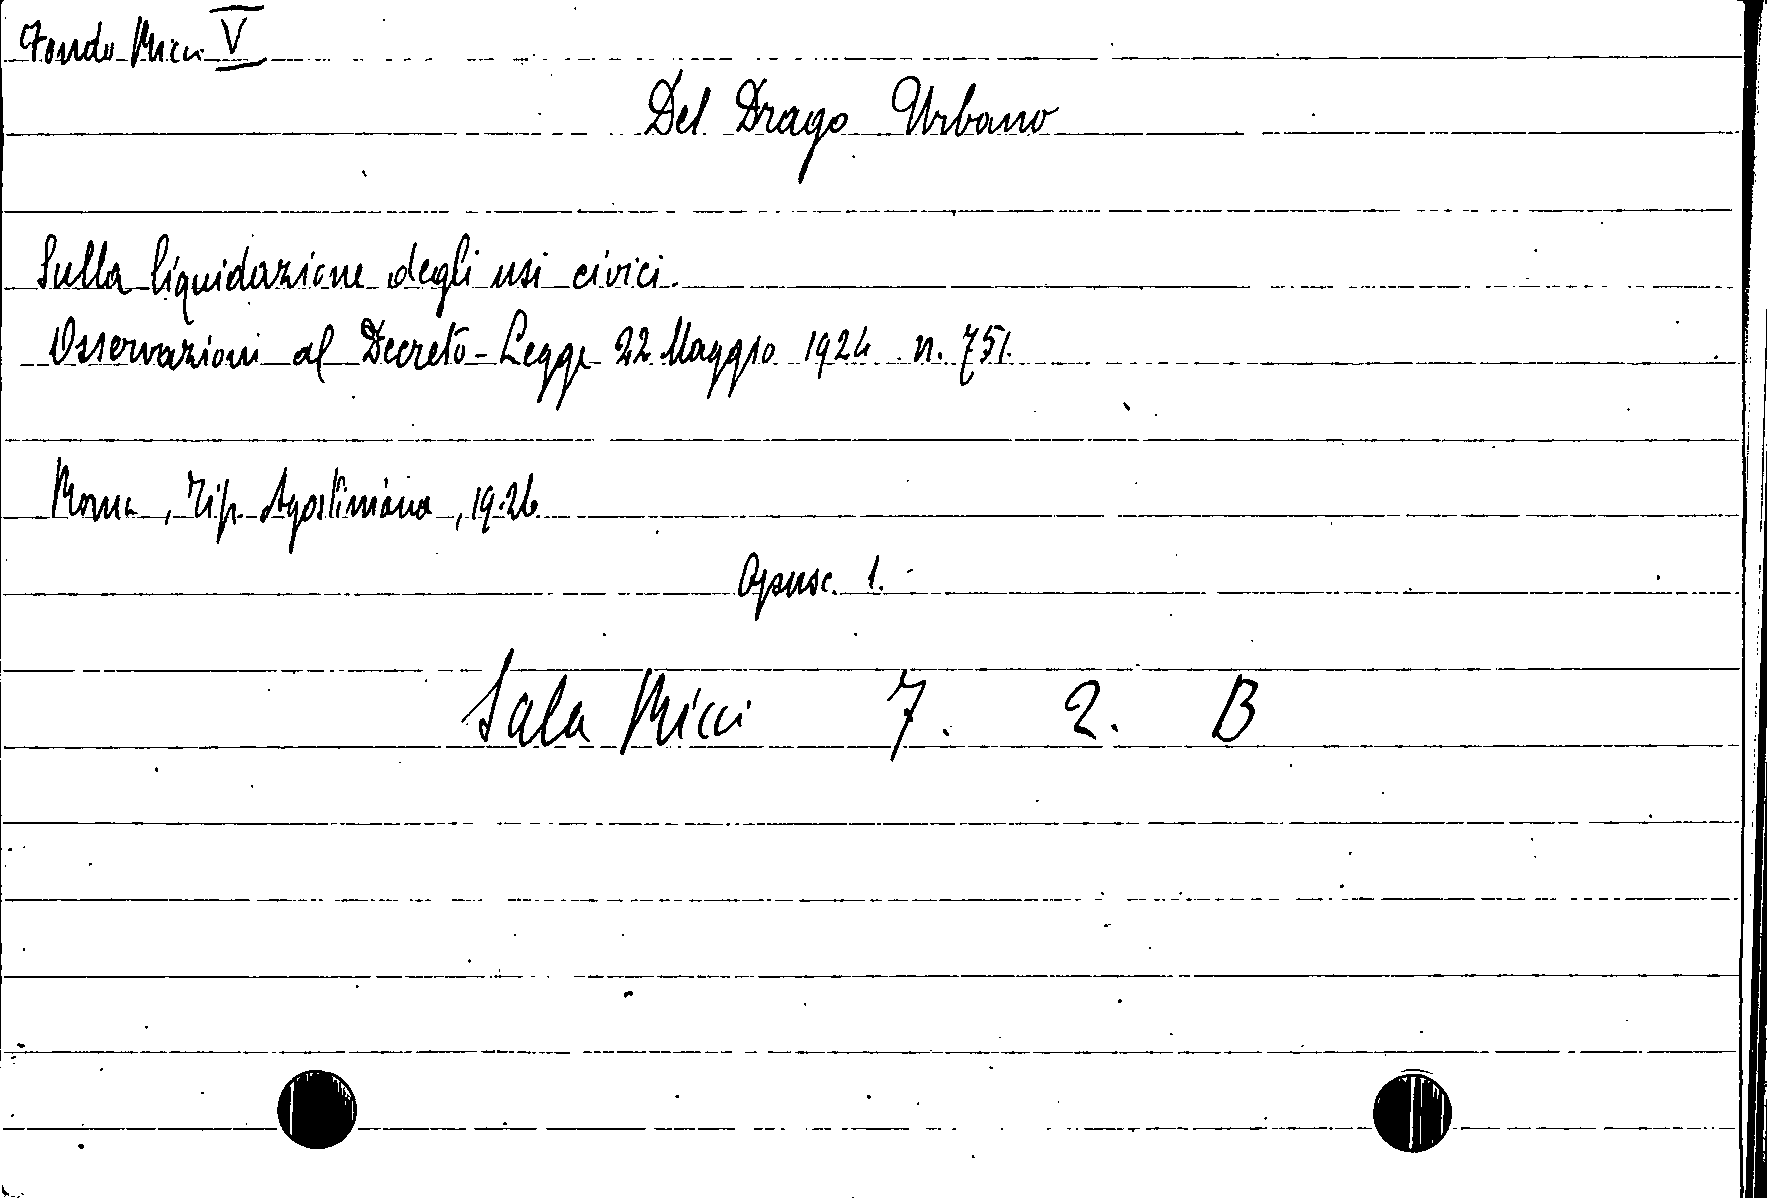 Fondo Ricci V
Del Drago Urbano
Sulla liquidazione degli usi civici.
Osservazioni al Decreto-Legge 22 Maggio 1924 n. 751.
Roma, Tip. Agostiniana, 1926
Opusc. 1.
Sala Ricci 7. 2. B